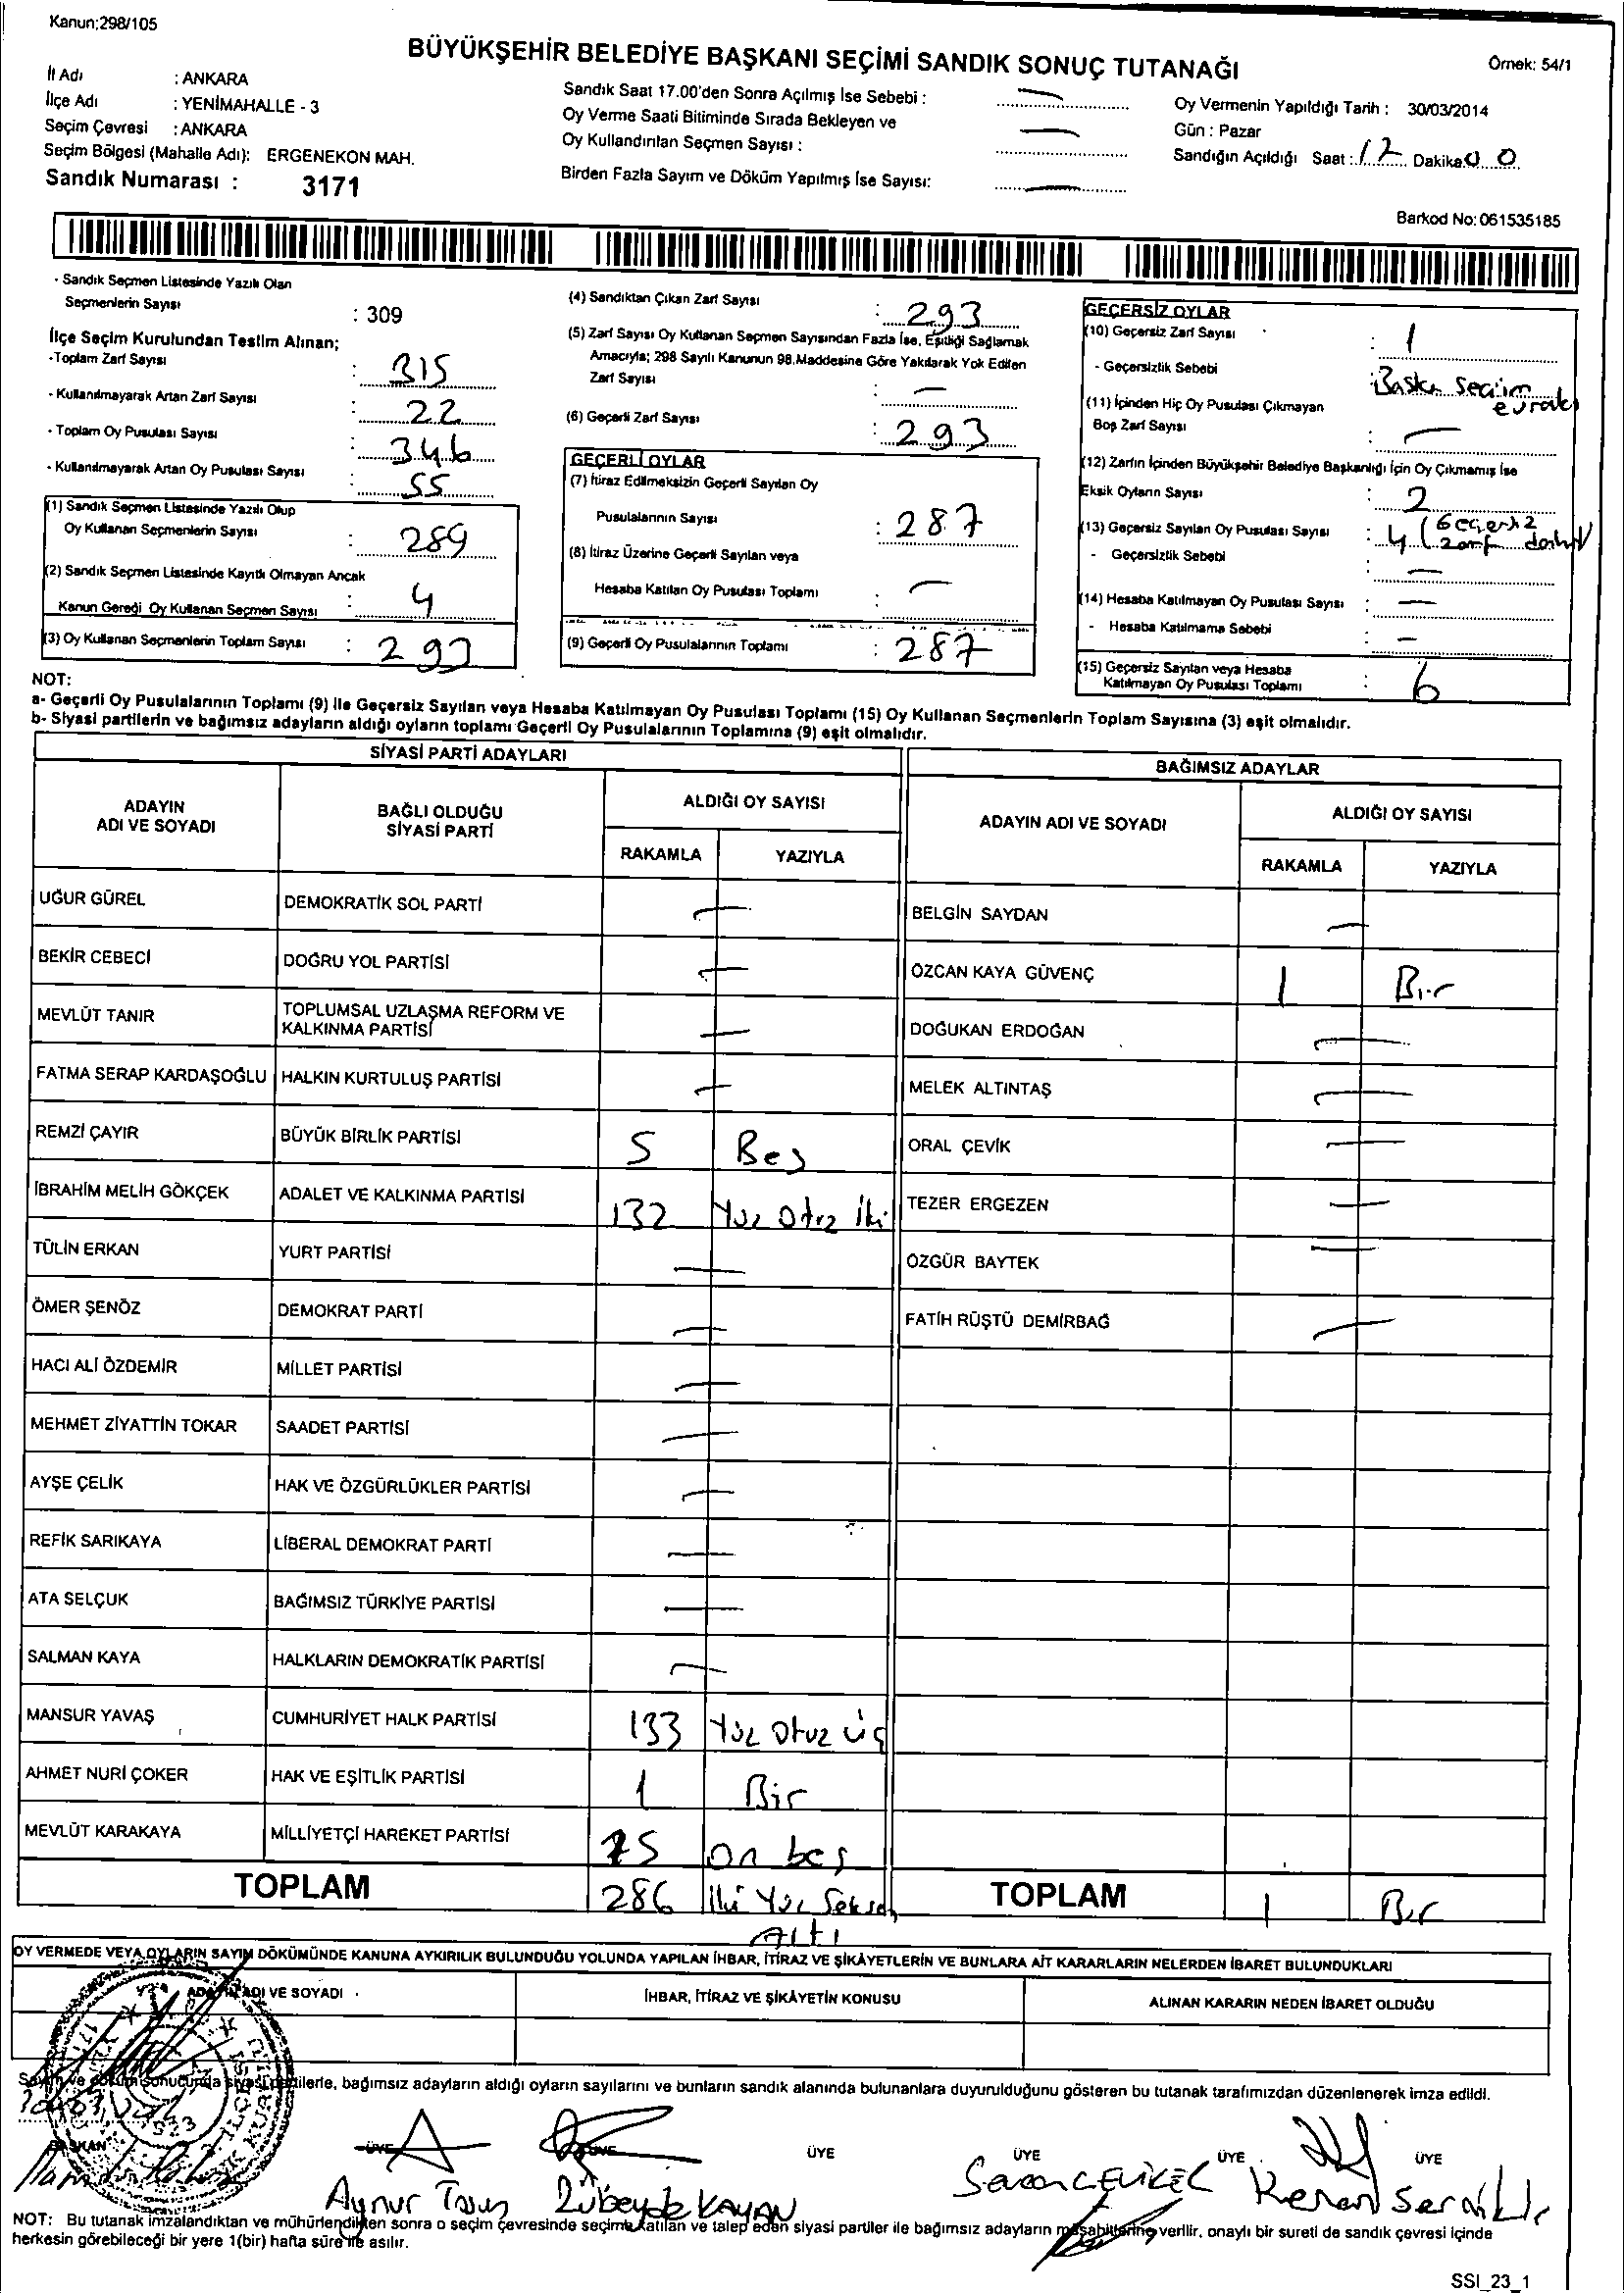 Kanun;298/105
BÜYÜKŞEHİR BELEDİYE BAŞKANI SEÇİMİ SANDIK SONUÇ TUTANAĞI
Örnek: 54/1
İl Adı : ANKARA
İlçe Adı : YENİMAHALLE - 3
Seçim Çevresi : ANKARA
Seçim Bölgesi (Mahalle Adı): ERGENEKON MAH.
Sandık Numarası : 3171
Sandık Saat 17.00'den Sonra Açılmış İse Sebebi : —
Oy Verme Saati Bitiminde Sırada Bekleyen ve
Oy Kullandırılan Seçmen Sayısı : —
Birden Fazla Sayım ve Döküm Yapılmış İse Sayısı: —
Oy Vermenin Yapıldığı Tarih : 30/03/2014
Gün : Pazar
Sandığın Açıldığı Saat : 12 Dakika 00
Barkod No: 061535185
- Sandık Seçmen Listesinde Yazılı Olan
Seçmenlerin Sayısı : 309
İlçe Seçim Kurulundan Teslim Alınan;
-Toplam Zarf Sayısı : 315
- Kullanılmayarak Artan Zarf Sayısı : 22
- Toplam Oy Pusulası Sayısı : 346
- Kullanılmayarak Artan Oy Pusulası Sayısı : 55
(1) Sandık Seçmen Listesinde Yazılı Olup
Oy Kullanan Seçmenlerin Sayısı : 289
(2) Sandık Seçmen Listesinde Kayıtlı Olmayan Ancak
Kanun Gereği Oy Kullanan Seçmen Sayısı : 4
(3) Oy Kullanan Seçmenlerin Toplam Sayısı : 293
(4) Sandıktan Çıkan Zarf Sayısı : 293
(5) Zarf Sayısı Oy Kullanan Seçmen Sayısından Fazla İse, Eşitliği Sağlamak
Amacıyla; 298 Sayılı Kanunun 98.Maddesine Göre Yakılarak Yok Edilen
Zarf Sayısı : —
(6) Geçerli Zarf Sayısı : 293
GEÇERLİ OYLAR
(7) İtiraz Edilmeksizin Geçerli Sayılan Oy
Pusulalarının Sayısı : 287
(8) İtiraz Üzerine Geçerli Sayılan veya
Hesaba Katılan Oy Pusulası Toplamı : —
(9) Geçerli Oy Pusulalarının Toplamı : 287
GEÇERSİZ OYLAR
(10) Geçersiz Zarf Sayısı : 1
- Geçersizlik Sebebi : Başka seçim
evrakı
(11) İçinden Hiç Oy Pusulası Çıkmayan
Boş Zarf Sayısı : —
(12) Zarfın İçinden Büyükşehir Belediye Başkanlığı İçin Oy Çıkmamış İse
Eksik Oyların Sayısı : 2
(13) Geçersiz Sayılan Oy Pusulası Sayısı : 4 (Geçersiz
zarf dahil)
- Geçersizlik Sebebi : —
(14) Hesaba Katılmayan Oy Pusulası Sayısı : —
- Hesaba Katılmama Sebebi : —
(15) Geçersiz Sayılan veya Hesaba
Katılmayan Oy Pusulası Toplamı : 6
NOT:
a- Geçerli Oy Pusulalarının Toplamı (9) ile Geçersiz Sayılan veya Hesaba Katılmayan Oy Pusulası Toplamı (15) Oy Kullanan Seçmenlerin Toplam Sayısına (3) eşit olmalıdır.
b- Siyasi partilerin ve bağımsız adayların aldığı oyların toplamı Geçerli Oy Pusulalarının Toplamına (9) eşit olmalıdır.
SİYASİ PARTİ ADAYLARI
ADAYIN
ADI VE SOYADI
BAĞLI OLDUĞU
SİYASİ PARTİ
ALDIĞI OY SAYISI
RAKAMLA YAZIYLA
UĞUR GÜREL DEMOKRATİK SOL PARTİ —
BEKİR CEBECİ DOĞRU YOL PARTİSİ —
MEVLÜT TANIR TOPLUMSAL UZLAŞMA REFORM VE
KALKINMA PARTİSİ —
FATMA SERAP KARDAŞOĞLU HALKIN KURTULUŞ PARTİSİ —
REMZİ ÇAYIR BÜYÜK BİRLİK PARTİSİ 5 Beş
İBRAHİM MELİH GÖKÇEK ADALET VE KALKINMA PARTİSİ 132 Yüz Otuz İki
TÜLİN ERKAN YURT PARTİSİ —
ÖMER ŞENÖZ DEMOKRAT PARTİ —
HACI ALİ ÖZDEMİR MİLLET PARTİSİ —
MEHMET ZİYATTİN TOKAR SAADET PARTİSİ —
AYŞE ÇELİK HAK VE ÖZGÜRLÜKLER PARTİSİ —
REFİK SARIKAYA LİBERAL DEMOKRAT PARTİ —
ATA SELÇUK BAĞIMSIZ TÜRKİYE PARTİSİ —
SALMAN KAYA HALKLARIN DEMOKRATİK PARTİSİ —
MANSUR YAVAŞ CUMHURİYET HALK PARTİSİ 133 Yüz Otuz üç
AHMET NURİ ÇOKER HAK VE EŞİTLİK PARTİSİ 1 Bir
MEVLÜT KARAKAYA MİLLİYETÇİ HAREKET PARTİSİ 15 On beş
TOPLAM 286 İki Yüz Seksen
Altı
BAĞIMSIZ ADAYLAR
ADAYIN ADI VE SOYADI
ALDIĞI OY SAYISI
RAKAMLA YAZIYLA
BELGİN SAYDAN —
ÖZCAN KAYA GÜVENÇ 1 Bir
DOĞUKAN ERDOĞAN —
MELEK ALTINTAŞ —
ORAL ÇEVİK —
TEZER ERGEZEN —
ÖZGÜR BAYTEK —
FATİH RÜŞTÜ DEMİRBAĞ —
TOPLAM 1 Bir
OY VERMEDE VEYA OYLARIN SAYIM DÖKÜMÜNDE KANUNA AYKIRILIK BULUNDUĞU YOLUNDA YAPILAN İHBAR, İTİRAZ VE ŞİKÂYETLERİN VE BUNLARA AİT KARARLARIN NELERDEN İBARET BULUNDUKLARI
ADI VE SOYADI
İHBAR, İTİRAZ VE ŞİKÂYETİN KONUSU
ALINAN KARARIN NEDEN İBARET OLDUĞU
Sayım ve döküm sonucunda siyasi partilerle, bağımsız adayların aldığı oyların sayılarını ve bunların sandık alanında bulunanlara duyurulduğunu gösteren bu tutanak tarafımızdan düzenlenerek imza edildi.
BAŞKAN ÜYE ÜYE ÜYE ÜYE ÜYE ÜYE
Aynur Zübeyde KAYAN Kenan
NOT: Bu tutanak imzalandıktan ve mühürlendikten sonra o seçim çevresinde seçime katılan ve talep eden siyasi partiler ile bağımsız adayların müşahitlerine verilir, onaylı bir sureti de sandık çevresi içinde
herkesin görebileceği bir yere 1(bir) hafta süre ile asılır.
SSI_23_1